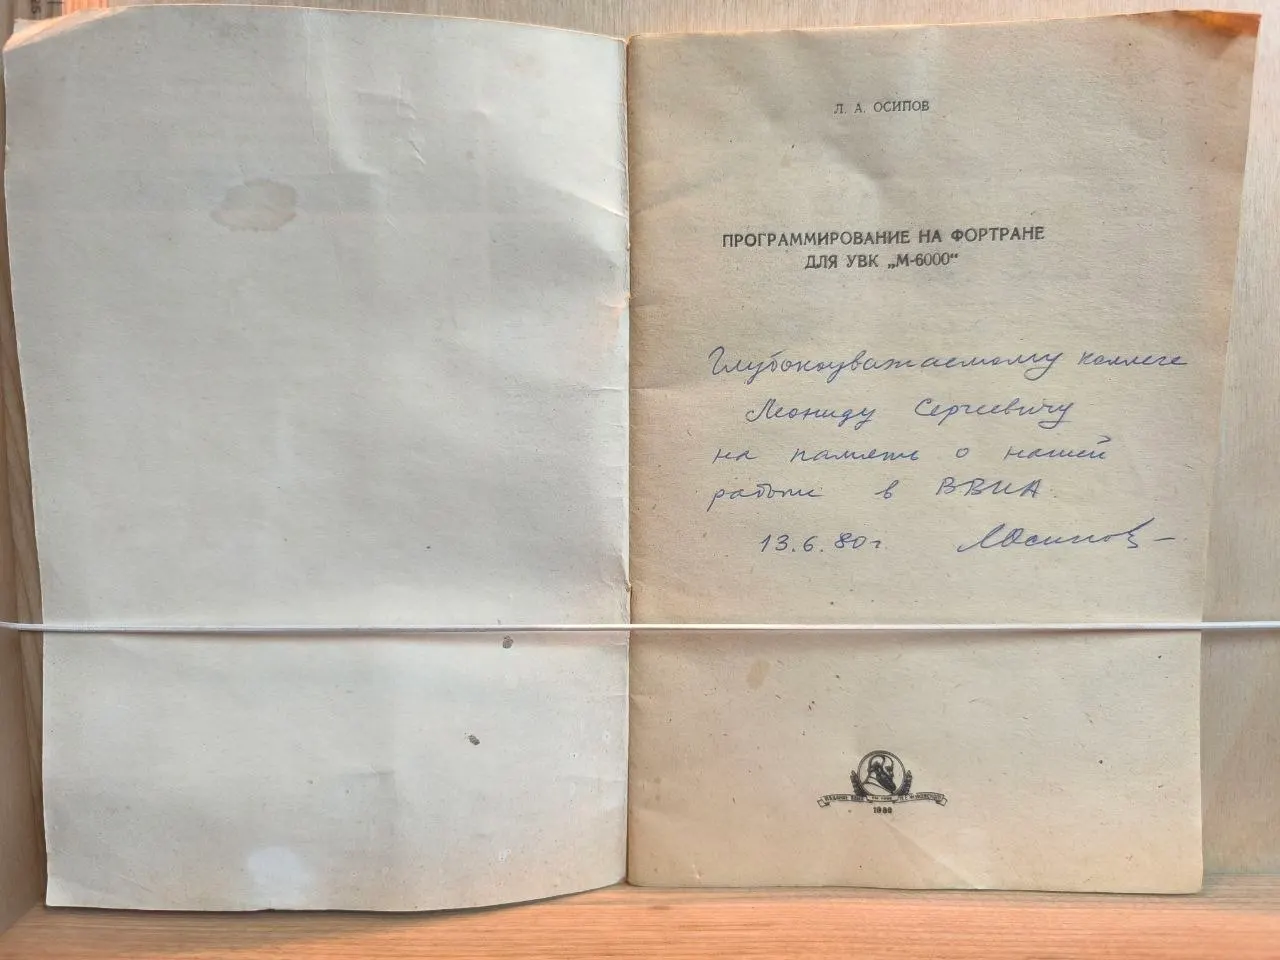 Л. А. ОСИПОВ
ПРОГРАММИРОВАНИЕ НА ФОРТРАНЕ
ДЛЯ УВК „М-6000“
Глубокоуважаемому коллеге
Леониду Сергеевичу
на память о нашей
работе в ВВИА
13.6.80г. ЛОсипов
1980